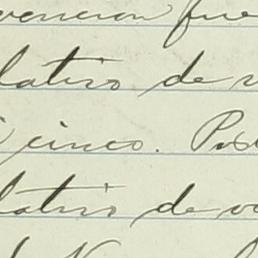 vencion fue
lativo de v
cinco. Pos
lativo de v